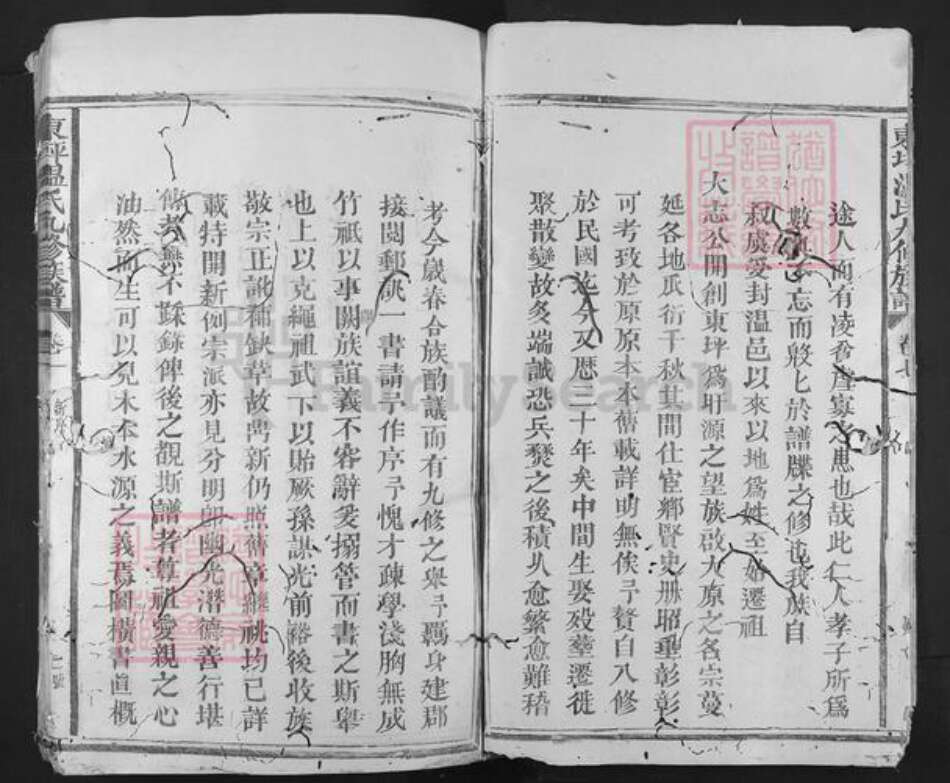 途人而有凌眾暴寡之患也哉此仁人孝子所為
數典不忘而殷匕於譜牒之修也我族自
叔虞受封温邑以來以地為姓至始遷祖
大志公開創東坪為盱源之望族啟大原之各宗蔓
延各地瓜衍千秋其間仕宦鄉賢史册昭垂彰彰
可考致於原原本本舊載詳明無俟予贅自八修
於民國迄今又歷三十年矣中間生娶殁塟遷徙
聚散變故多端誠恐兵燹之後積乆愈繁愈難稽
考今歲春合族酌議而有九修之舉予羈身建郡
接閱郵訊一書請予作序予愧才疎學淺胸無成
竹祇以事關族誼義不容辭爰搦管而書之斯舉
也上以克繩祖武下以貽厥孫謀光前裕後收族
敬宗正訛補缺革故鼎新仍照舊章繼祧均已詳
載特開新例宗派亦見分明即幽光潛德善行堪
傳者無不蹂錄俾後之覩斯譜者尊祖愛親之心
油然而生可以見木本水源之義焉圖橫書直概
東坪温氏九修族譜
卷
FamilySearch